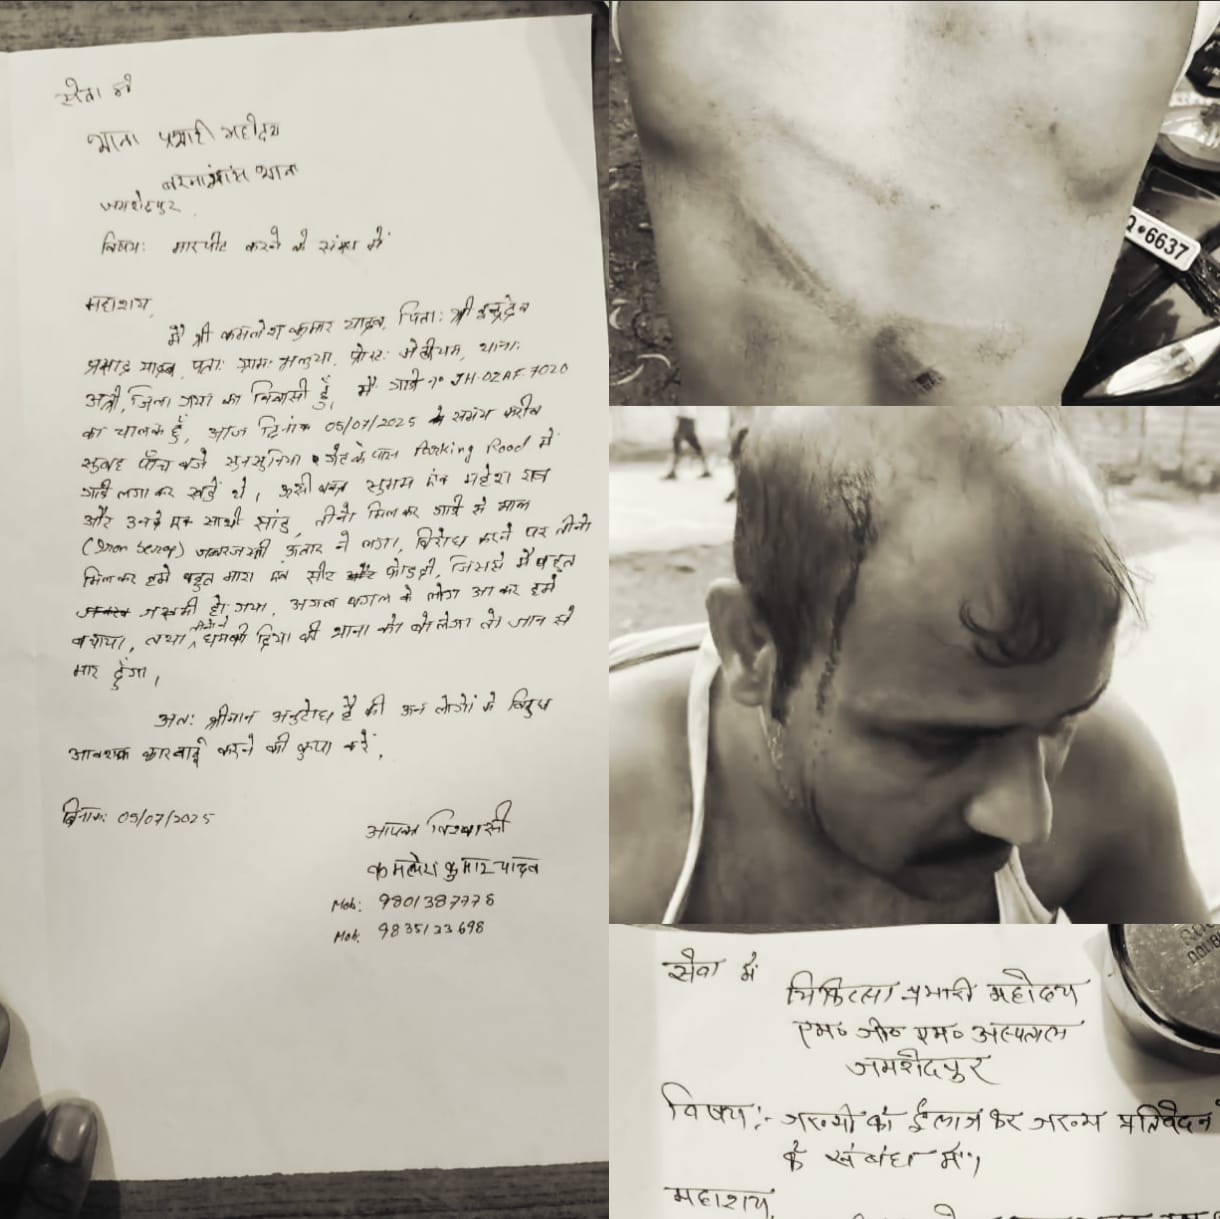 सेवा में
थाना प्रभारी महोदय
बरमामांस थाना
जमशेदपुर
विषय: मारपीट करने के संबंध में
महाशय,
मैं श्री कमलेश कुमार यादव, पिता: श्री इन्द्रदेव
प्रसाद यादव, पता: ग्राम: पोस्ट: थाना:
अत्री, जिला गया का निवासी हूँ, मैं गाड़ी न० JH-02AF-7020
का चालक हूँ, आज दिनांक 05/07/2025 के समय करीब
सुबह पाँच बजे सुनसुनिया गेट के पास Parking Road में
गाड़ी लगा कर खड़े थे, उसी वक्त एंव महेश राव
और उनके एक साथी सांडू, तीनो मिलकर गाड़ी से माल
जबरजस्ती ऊतार ने लगा, विरोध करने पर तीनो
मिलकर हमे बहुत मारा एंव सीर फोड़ दी, जिससे मैं बहुत
जख्मी हो गया, अगल बगल के लोग आ कर हमे
बचाया, तथा तीनो ने धमकी दिया की थाना को बोलेगा तो जान से
मार दुँगा,
अत: श्रीमान अनुरोध है की उन लोगों के विरुध
आवश्यक कारवाई करने की कृपा करें,
दिनांक: 05/07/2025
आपका विश्वासी
कमलेश कुमार यादव
Mob: 9801387778
Mob. 9835123698
6637
सेवा में
चिकित्सा प्रभारी महोदय
एम० जी० एम० अस्पताल
जमशेदपुर
विषय:- जख्मी का ईलाज कर जख्म प्रतिवेदन
के संबंध में"।
महाशय,